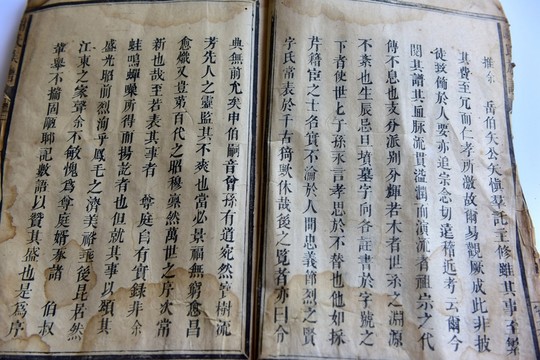 推余 岳伯矢公矣槇羣託主修雖其事至繁
其費至冗而仁孝所激故爾易觀厥成此非披
徒致脩於人要亦追宗念切遠稽近考云爾今
閱其譜其血脈流貫溢潤而演流者祖宗之代
傳不息也支分派別分輝若木者世系之淵源
不紊也生辰忌日墳墓字向各註書於字號之
下者使世世子孫永言孝思於不替也他如採
芹籍宦之士名實不淪於人間忠義節烈之賢
字氏常表於千古猗歟休哉後之覽者亦曰今
典無前允矣申伯嗣音曾孫有道苑然宰樹流
芳先人之靈監其不爽也當必景福無窮愈昌
愈熾又豈第百代之昭穆粲然萬世之序次常
新也哉至若表其事者 尊庭自有實錄非余
蛙鳴蟬噪所得而揚訖者也但就其事以頌其
盛光昭前烈洵乎鳳毛之濟美裕垂後昆若然
江東之家聲余不敏愧為 尊庭婿承諸 伯叔
華舉不揣固陋聊記數語以贊其盛也是為序